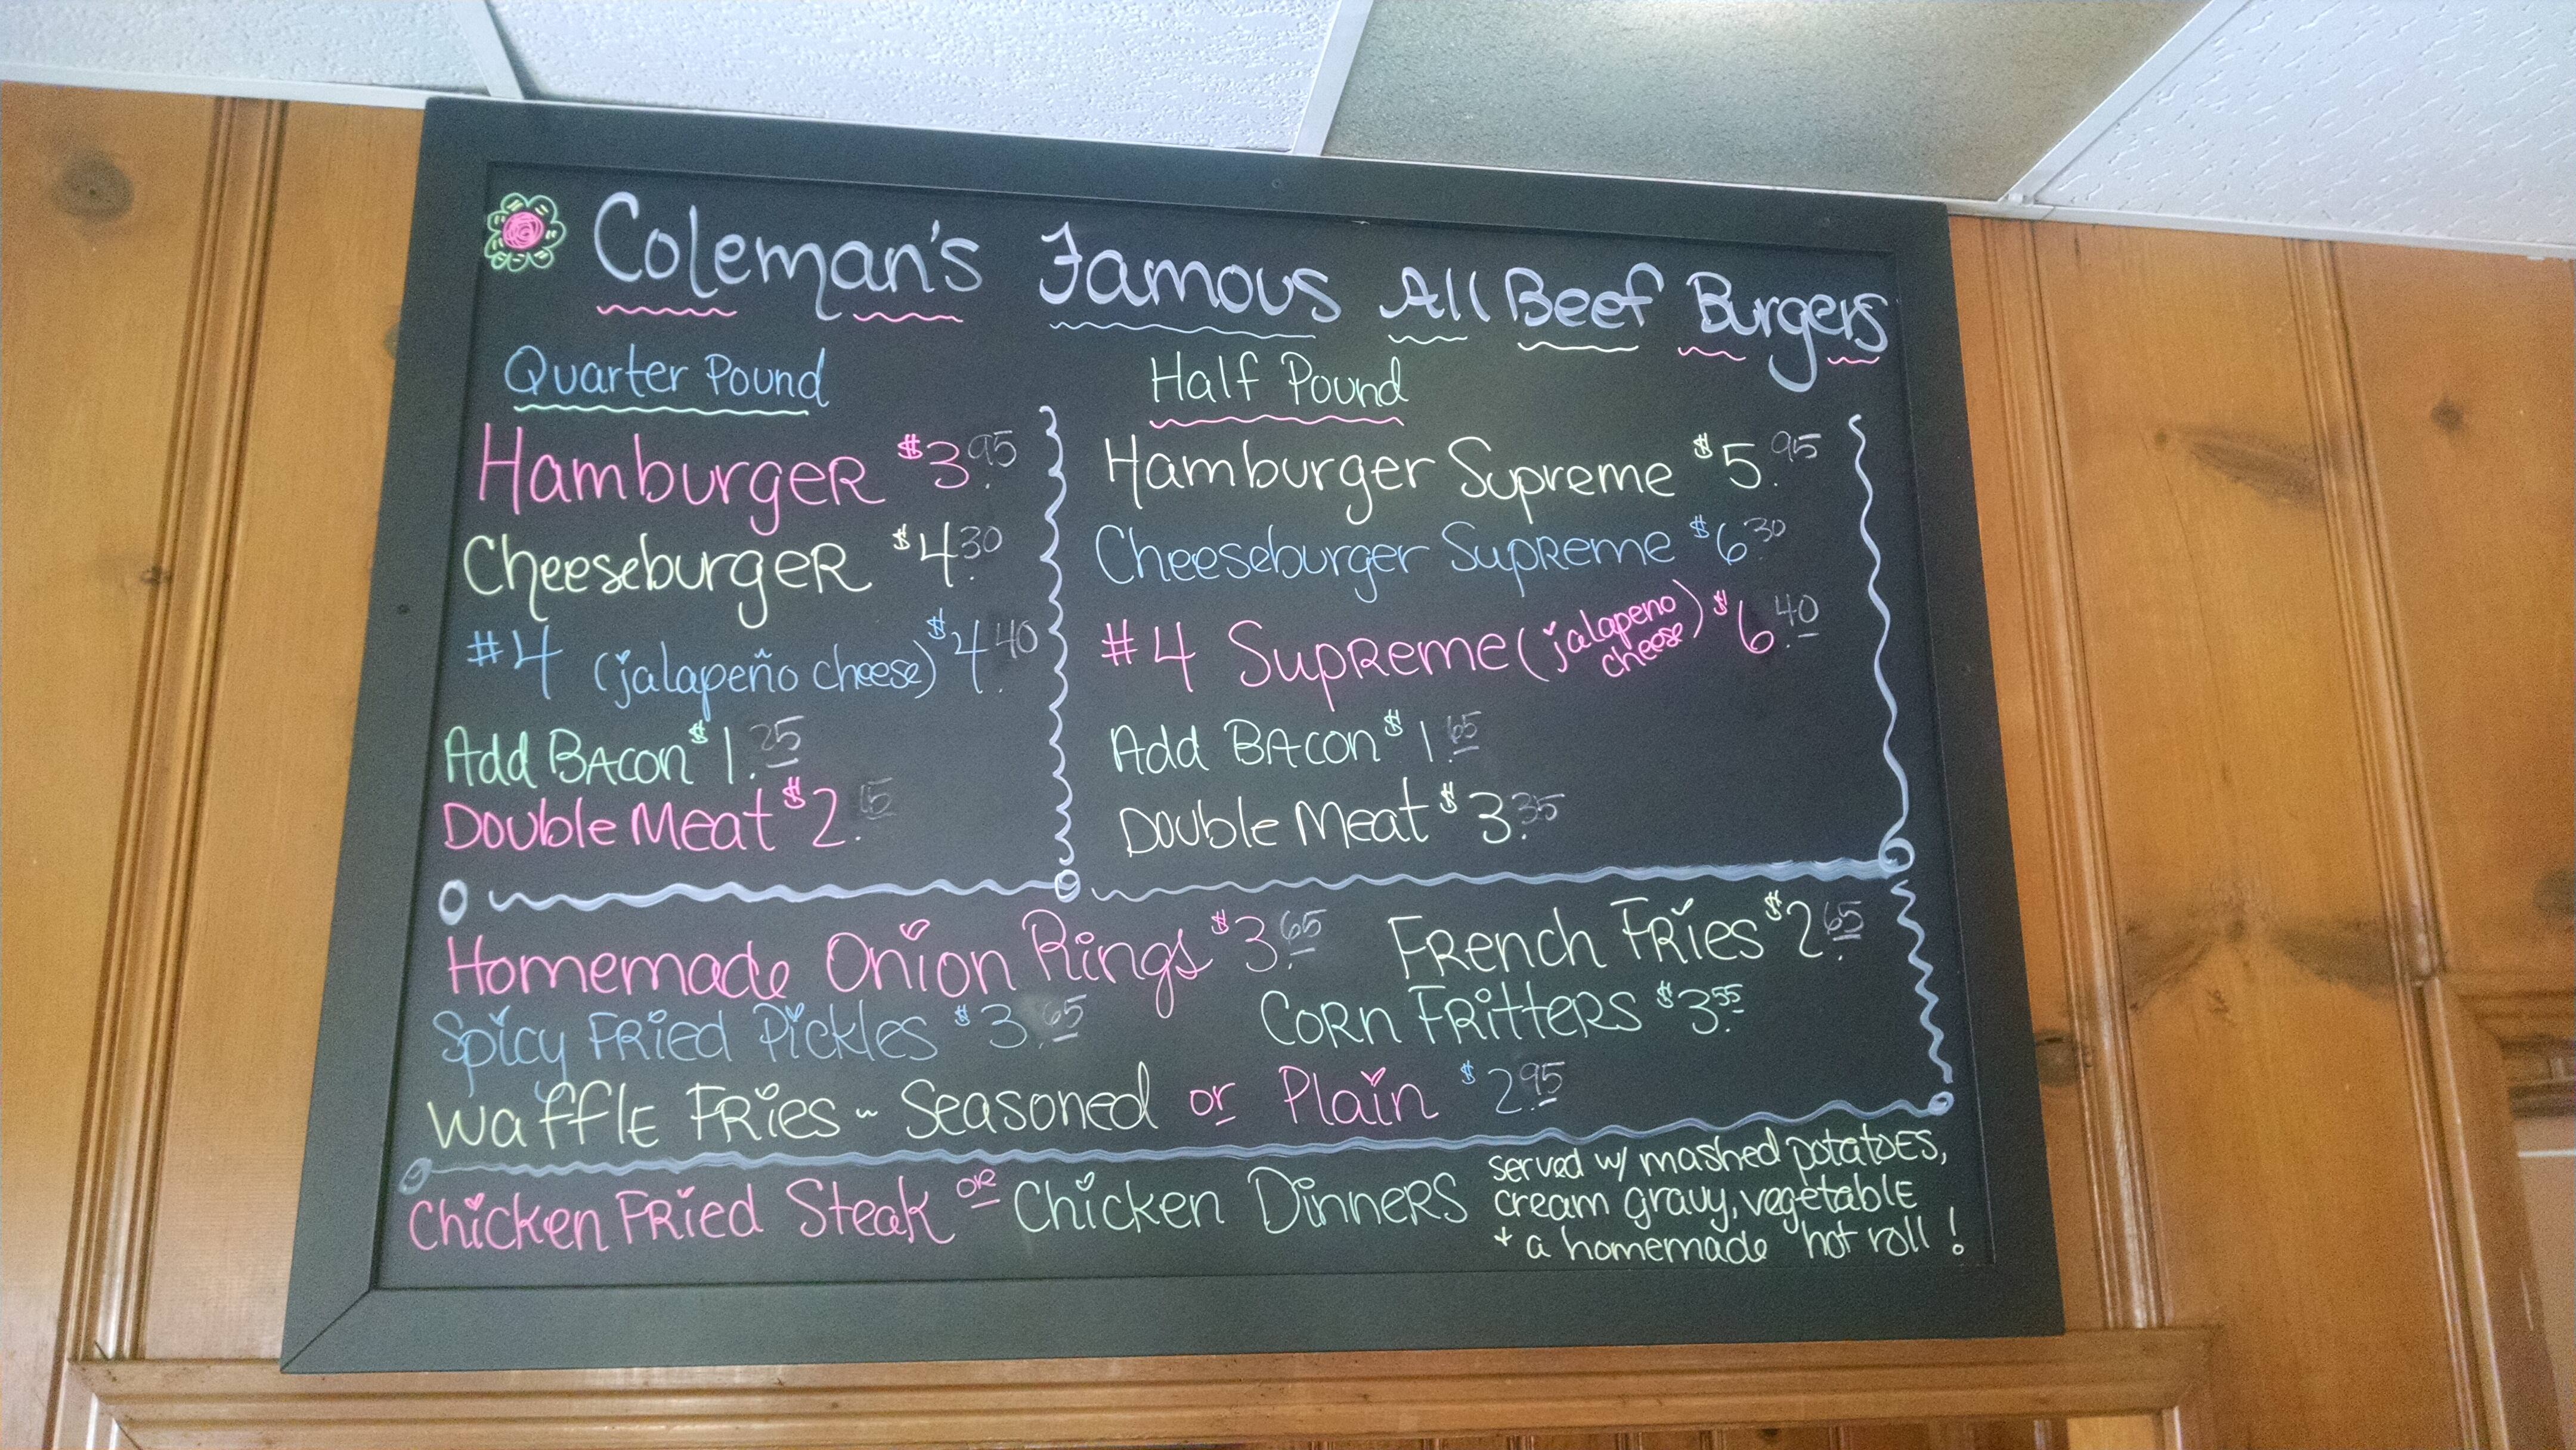 Coleman's Famous All Beef Burgers
Quarter Pound
Hamburger $3.95
Cheeseburger $4.30
#4 (jalapeño cheese) $4.40
Add Bacon $1.25
Double Meat $2.15
Half Pound
Hamburger Supreme $5.95
Cheeseburger Supreme $6.30
#4 Supreme (jalapeno cheese) $6.40
Add Bacon $1.65
Double Meat $3.35
Homemade Onion Rings $3.65 French Fries $2.65
Spicy Fried Pickles $3.65 Corn Fritters $3.55
Waffle Fries ~ Seasoned or Plain $2.95
Chicken Fried Steak or Chicken Dinners
served w/ mashed potatoes,
cream gravy, vegetable
+ a homemade hot roll!